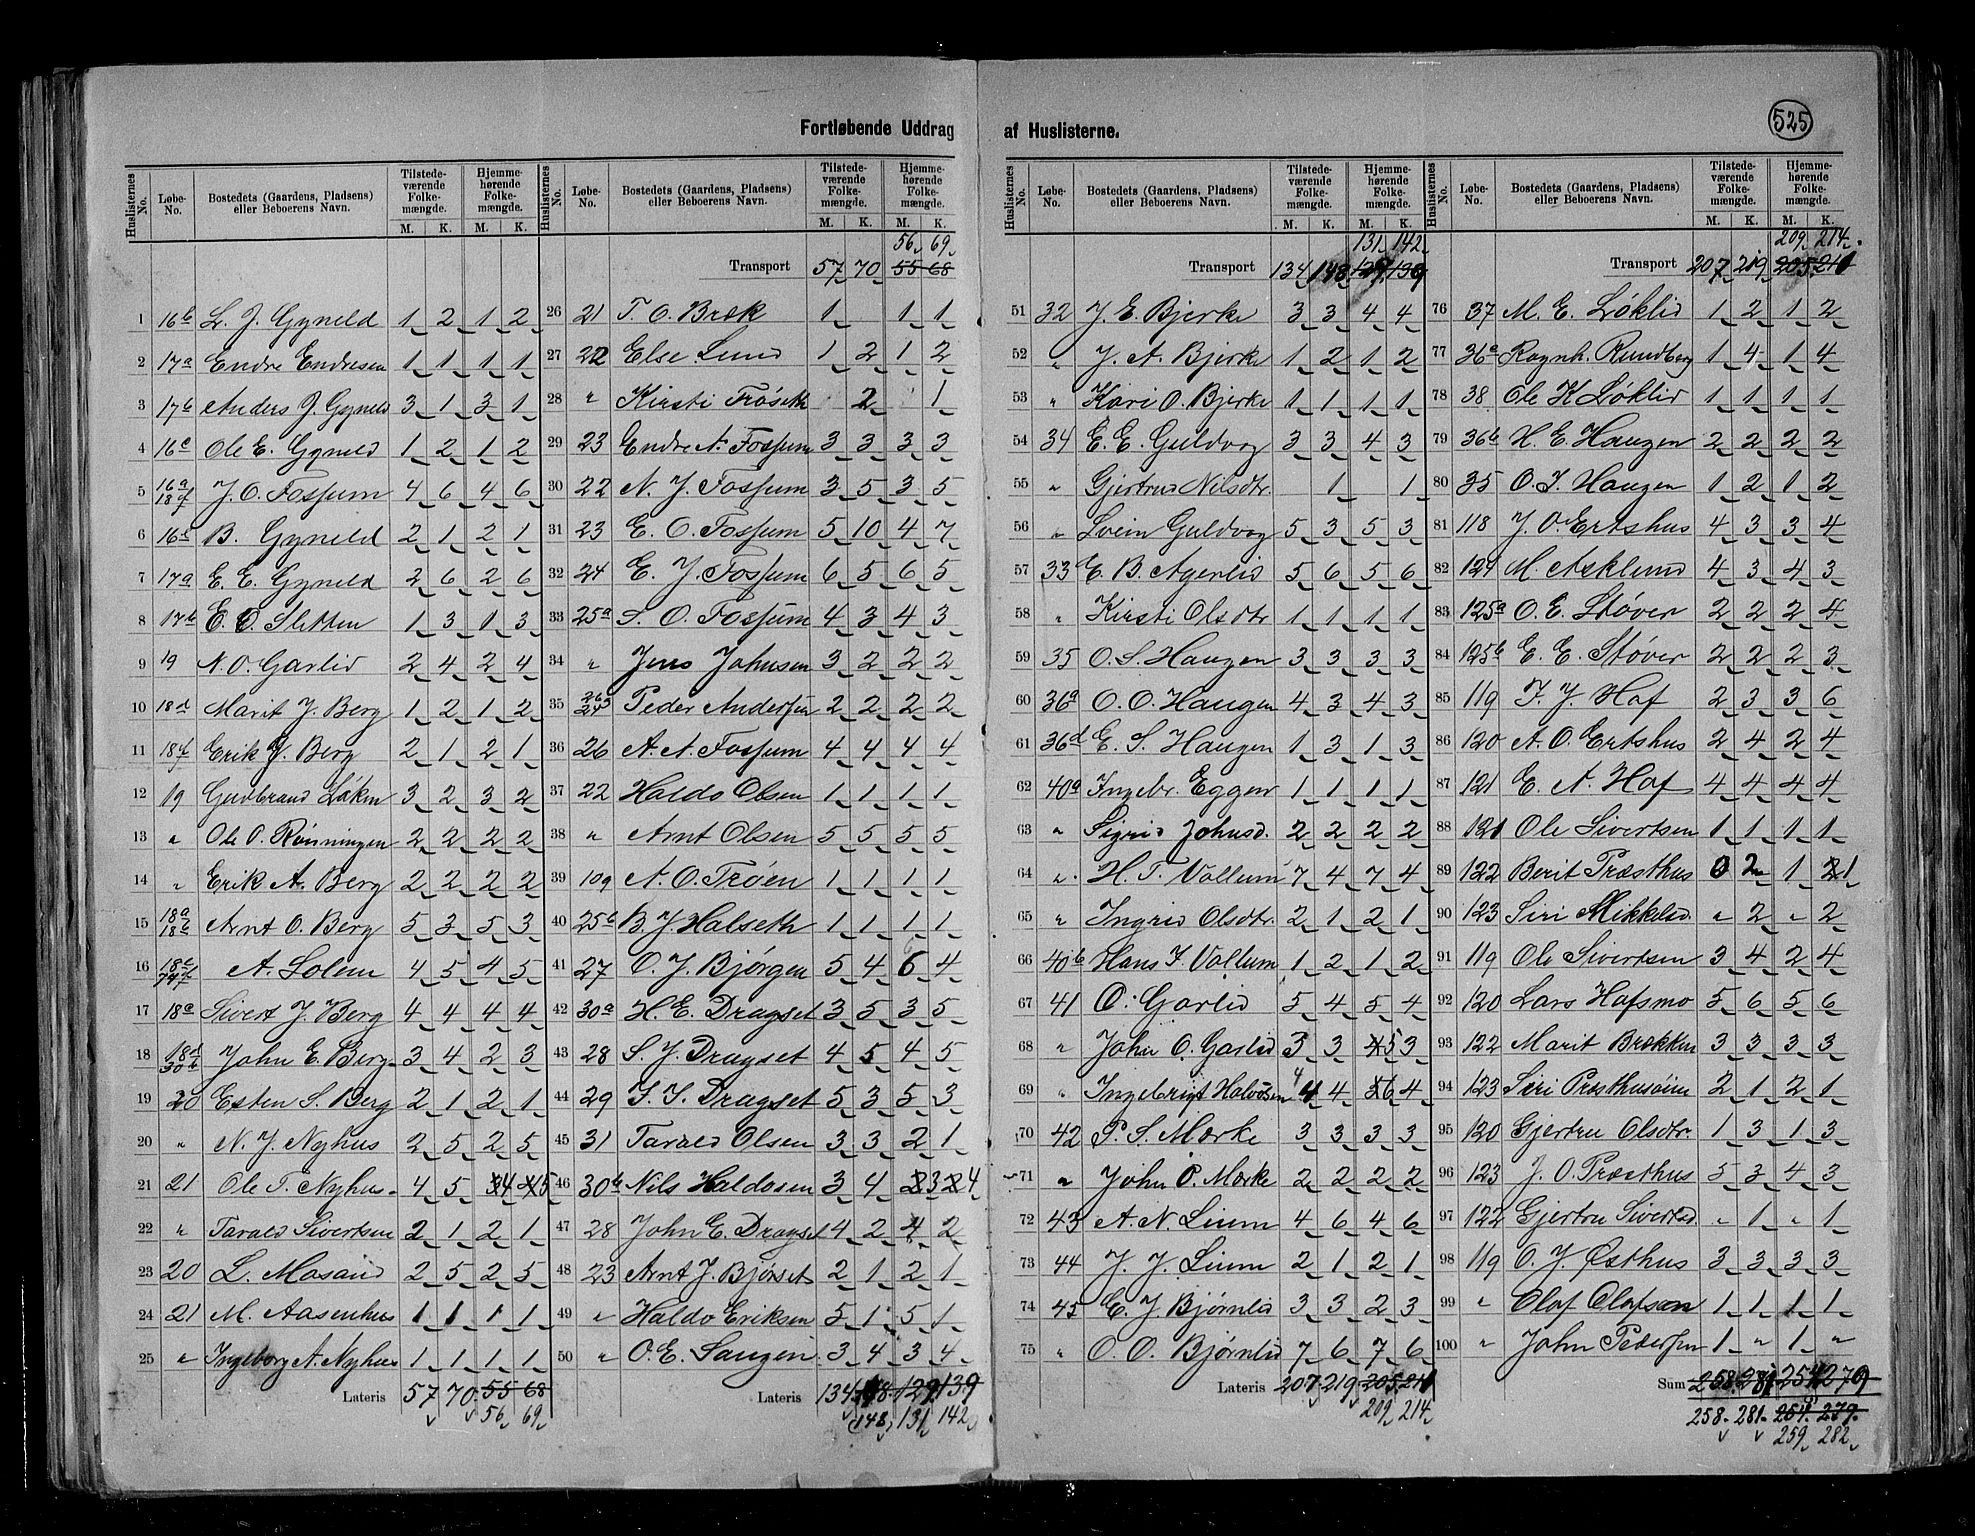 525
Fortløbende Uddrag af Huslisterne.
Huslisternes No. Løbe-No. Bostedets (Gaardens, Pladsens) eller Beboerens Navn. Tilstede-værende Folke-mængde. M. K. Hjemme-hørende Folke-mængde. M. K.
1 16b L. J. Gyneld 1 2 1 2
2 17a Endre Endresen 1 1 1 1
3 17b Anders J. Gyneld 3 1 3 1
4 16c Ole E. Gyneld 1 2 1 2
5 16a 18f J. O. Fossum 4 6 4 6
6 16b B. Gyneld 2 1 2 1
7 17a E. E. Gyneld 2 6 2 6
8 17b E. O. Sletten 1 3 1 3
9 19 N. O. Garlid 2 4 2 4
10 18d Marit J. Berg 1 2 1 2
11 18f Erik J. Berg 2 1 2 1
12 19 Gudbrand Løken 3 2 3 2
13 " Ole O. Rønningen 2 2 2 2
14 " Erik A. Berg 2 2 2 2
15 18a 18b Arnt O. Berg 5 3 5 3
16 18c A. Solem 4 5 4 5
17 18a Sivert J. Berg 4 4 4 4
18 18d 30b John E. Berg 3 4 2 3
19 20 Esten S. Berg 2 1 2 1
20 " N. J. Nyhus 2 5 2 5
21 21 Ole T. Nyhus 4 5 4 5
22 " Tarald Sivertsen 2 1 2 1
23 20 L. Mosand 2 5 2 5
24 21 M. Aasenhus 1 1 1 1
25 " Ingeborg A. Nyhus 1 1 1 1
Lateris 57 70 55 68
56 69
Huslisternes No. Løbe-No. Bostedets (Gaardens, Pladsens) eller Beboerens Navn. Tilstede-værende Folke-mængde. M. K. Hjemme-hørende Folke-mængde. M. K.
56 69
Transport 57 70 55 68
26 21 T. O. Bræk 1 1 1
27 22 Else Lund 1 2 1 2
28 " Kirsti Frøseth 2 1
29 23 Endre A. Fossum 3 3 3 3
30 22 N. J. Fossum 3 5 3 5
31 23 E. O. Fossum 5 10 4 7
32 24 E. J. Fossum 6 5 6 5
33 25a S. O. Fossum 4 3 4 3
34 " Jens Johnsen 3 2 2 2
35 Peder Andersen 2 2 2 2
36 26 A. A. Fossum 4 4 4 4
37 22 Haldo Olsen 1 1 1 1
38 " Arnt Olsen 5 5 5 5
39 109 A. O. Trøen 1 1 1 1
40 25b B. J. Halseth 1 1 1 1
41 27 O. J. Bjørgen 5 4 6 4
42 30a H. E. Dragset 3 5 3 5
43 28 S. J. Dragset 4 5 4 5
44 29 I. S. Dragset 5 3 5 3
45 31 Tarald Olsen 3 3 2 1
46 30b Nils Haldosen 3 4 3 4
47 28 John E. Dragset 4 2 4 2
48 23 Arnt J. Bjørset 2 1 2 1
49 " Haldo Eriksen 5 1 5 1
50 " O. E. Saugen 3 4 3 4
Lateris 134 148 129 139
148 131 142
Huslisternes No. Løbe-No. Bostedets (Gaardens, Pladsens) eller Beboerens Navn. Tilstede-værende Folke-mængde. M. K. Hjemme-hørende Folke-mængde. M. K.
131 142
Transport 134 148 129 139
51 32 J. E. Bjerke 3 3 4 4
52 " J. A. Bjerke 1 2 1 2
53 " Kari O. Bjerke 1 1 1 1
54 34 E. E. Guldvog 3 3 4 3
55 " Gjertrud Nilsdtr. 1 1
56 " Svein Guldvog 5 3 5 3
57 33 E. B. Agerlid 5 6 5 6
58 " Kirsti Olsdtr 1 1 1 1
59 35 O. S. Haugen 3 3 3 3
60 36a O. O. Haugen 4 3 4 3
61 36d E. S. Haugen 1 3 1 3
62 40a Ingebr. Eggen 1 1 1 1
63 " Sigrid Johnsd. 2 2 2 2
64 " H. T. Vollum 7 4 7 4
65 " Ingrid Olsdtr. 2 1 2 1
66 40b Hans I. Vollum 1 2 1 2
67 41 O. Garlid 5 4 5 4
68 " John O. Garlid 3 3 5 3
69 " Ingebrigt Halvorsen 4 4 6 4
70 42 P. S. Mørke 3 3 3 3
71 " John P. Mørke 2 2 2 2
72 43 A. N. Lium 4 6 4 6
73 44 J. J. Lium 2 1 2 1
74 45 E. J. Bjørnli 3 3 2 3
75 " O. O. Bjørnlid 7 6 7 6
Lateris 207 219 205 211
209 214
Huslisternes No. Løbe-No. Bostedets (Gaardens, Pladsens) eller Beboerens Navn. Tilstede-værende Folke-mængde. M. K. Hjemme-hørende Folke-mængde. M. K.
209 214
Transport 207 219 205 211
76 37 M. E. Løklid 1 2 1 2
77 36a Ragnh. Rundberg 1 4 1 4
78 38 Ole K Løklid 1 1 1 1
79 36b H. E. Haugen 2 2 2 2
80 35 O. I. Haugen 1 2 1 2
81 118 J. O. Ertshus 4 3 3 4
82 124 M. Asklund 4 3 4 3
83 125a O. E. Støver 2 2 2 4
84 125b E. E. Støver 2 2 2 3
85 119 F. J. Hof 2 3 3 6
86 120 A. O. Ertshus 2 4 2 4
87 121 E. A. Hof 4 4 4 4
88 121 Ole Sivertsen 1 1 1 1
89 122 Berit Præsthus 0 2 1 1
90 123 Siri Mikkelsd. " 2 " 2
91 119 Ole Sivertsen 3 4 2 4
92 120 Lars Hofsmo 5 6 5 6
93 122 Marit Brækken 3 3 3 3
94 123 Siri Præsthusøien 2 1 2 1
95 120 Gjertru Olsdtr. 1 3 1 3
96 123 J. O. Præsthus 5 3 4 3
97 122 Gjertru Sivertsd " 1 " 1
98 119 O. J. Østhus 3 3 3 3
99 " Olof Olofson 1 1 1 1
100 " John Pedersen 1 " 1 "
Sum 258 281 254 279
258 281 254 279
259 282